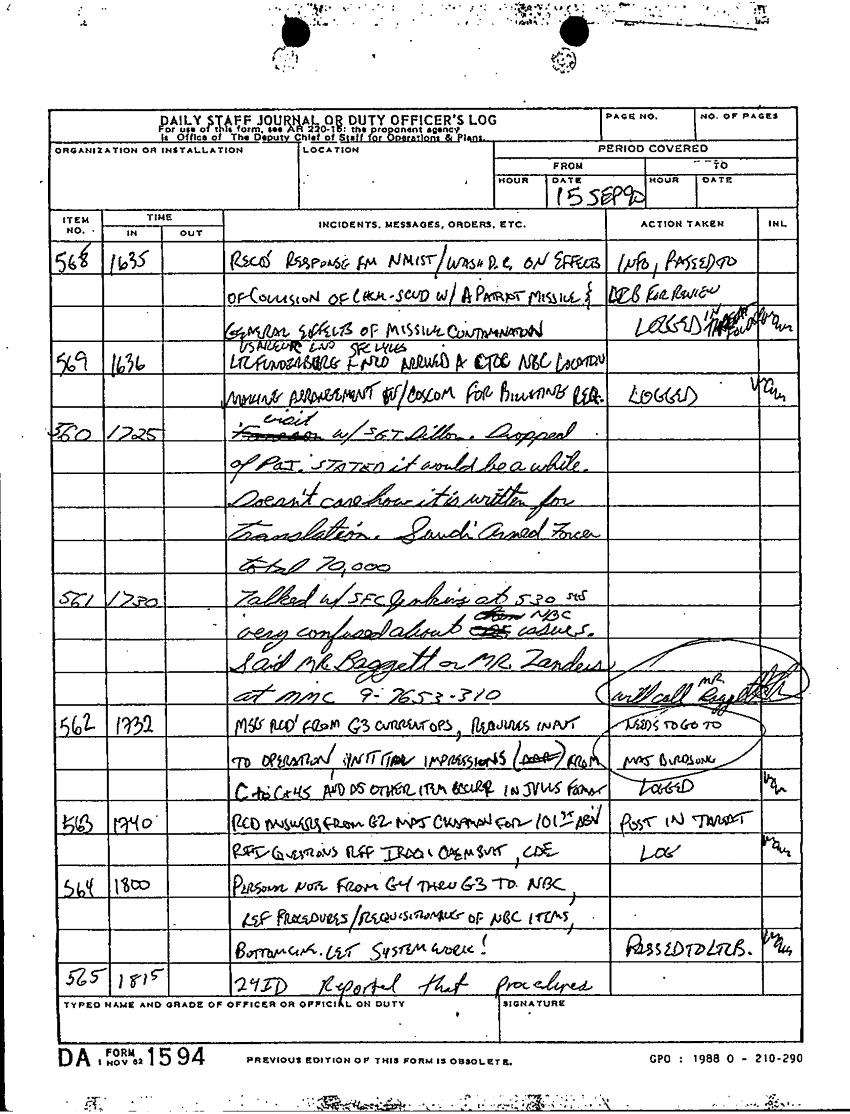 DAILY STAFF JOURNAL OR DUTY OFFICER'S LOG
For use of this form, see AR 220-15: the proponent agency
is Office of The Deputy Chief of Staff for Operations & Plans.
PAGE NO.
NO. OF PAGES
ORGANIZATION OR INSTALLATION
LOCATION
PERIOD COVERED
FROM
TO
HOUR
DATE
HOUR
DATE
15 SEP 90
ITEM NO.
TIME
IN
OUT
INCIDENTS, MESSAGES, ORDERS, ETC.
ACTION TAKEN
INL
568 1635 REC'D RESPONSE FM NMIST/WASH D.C. ON EFFECTS INFO, PASSED TO
OF COLLISION OF CHEM-SCUD W/ A PATRIOT MISSILE & FOR REVIEW
GENERAL EFFECTS OF MISSILE CONTAMINATION LOGGED IN THREAT
USAREUR LNO SFC LYLES
569 1636 ARRIVED NBC LOCATION
MAKING ARRANGEMENT W/COSCOM FOR BILLETING REQ. LOGGED
560 1725 visit w/ SGT Dillon. Dropped
of POI. STATED it would be a while.
Doesn't care how it is written for
Translation. Saudi Armed Forces
total 70,000
561 1730 Talked w/ SFC Jenkins at 530
very confused about NBC issues.
Said MR. Baggett or MR. Zanders
at MMC 9-7653-310 will call MR. Baggett
562 1732 MSG RCD FROM G3 CURRENT OPS, REQUIRES INPUT NEEDS TO GO TO
TO OPERATION INITIAL IMPRESSIONS FROM MAJ BIRDSONG
AND AS OTHER ITEM OCCUR IN JULLS FORMAT LOGGED
563 1740 RCD ANSWERS FROM G2 MAJ CHAPMAN FOR 101ST ABN POST IN TARGET
RFI QUESTIONS REF IRAQI CDE LOG
564 1800 PERSONAL NOTE FROM G4 THRU G3 TO NBC,
REF PROCEDURES/REQUISITIONING OF NBC ITEMS,
BOTTOM LINE. LET SYSTEM WORK! PASSED TO LTC B.
565 1815 24ID Reported that procedures
TYPED NAME AND GRADE OF OFFICER OR OFFICIAL ON DUTY
SIGNATURE
DA FORM 1 NOV 62 1594
PREVIOUS EDITION OF THIS FORM IS OBSOLETE.
GPO : 1988 O - 210-290